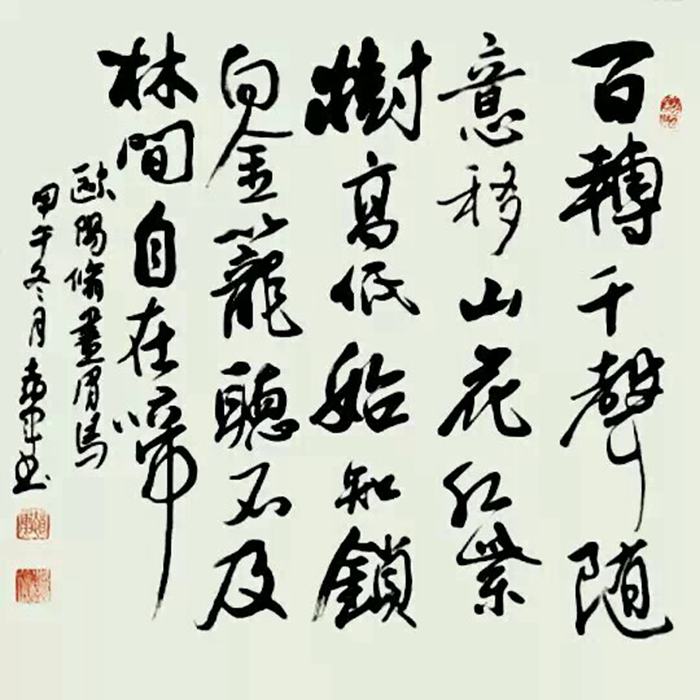 百转千聲随
意移山花红紫
樹高低始知鎖
向金籠聽不及
林間自在啼
歐陽脩畫眉鳥
甲午冬月